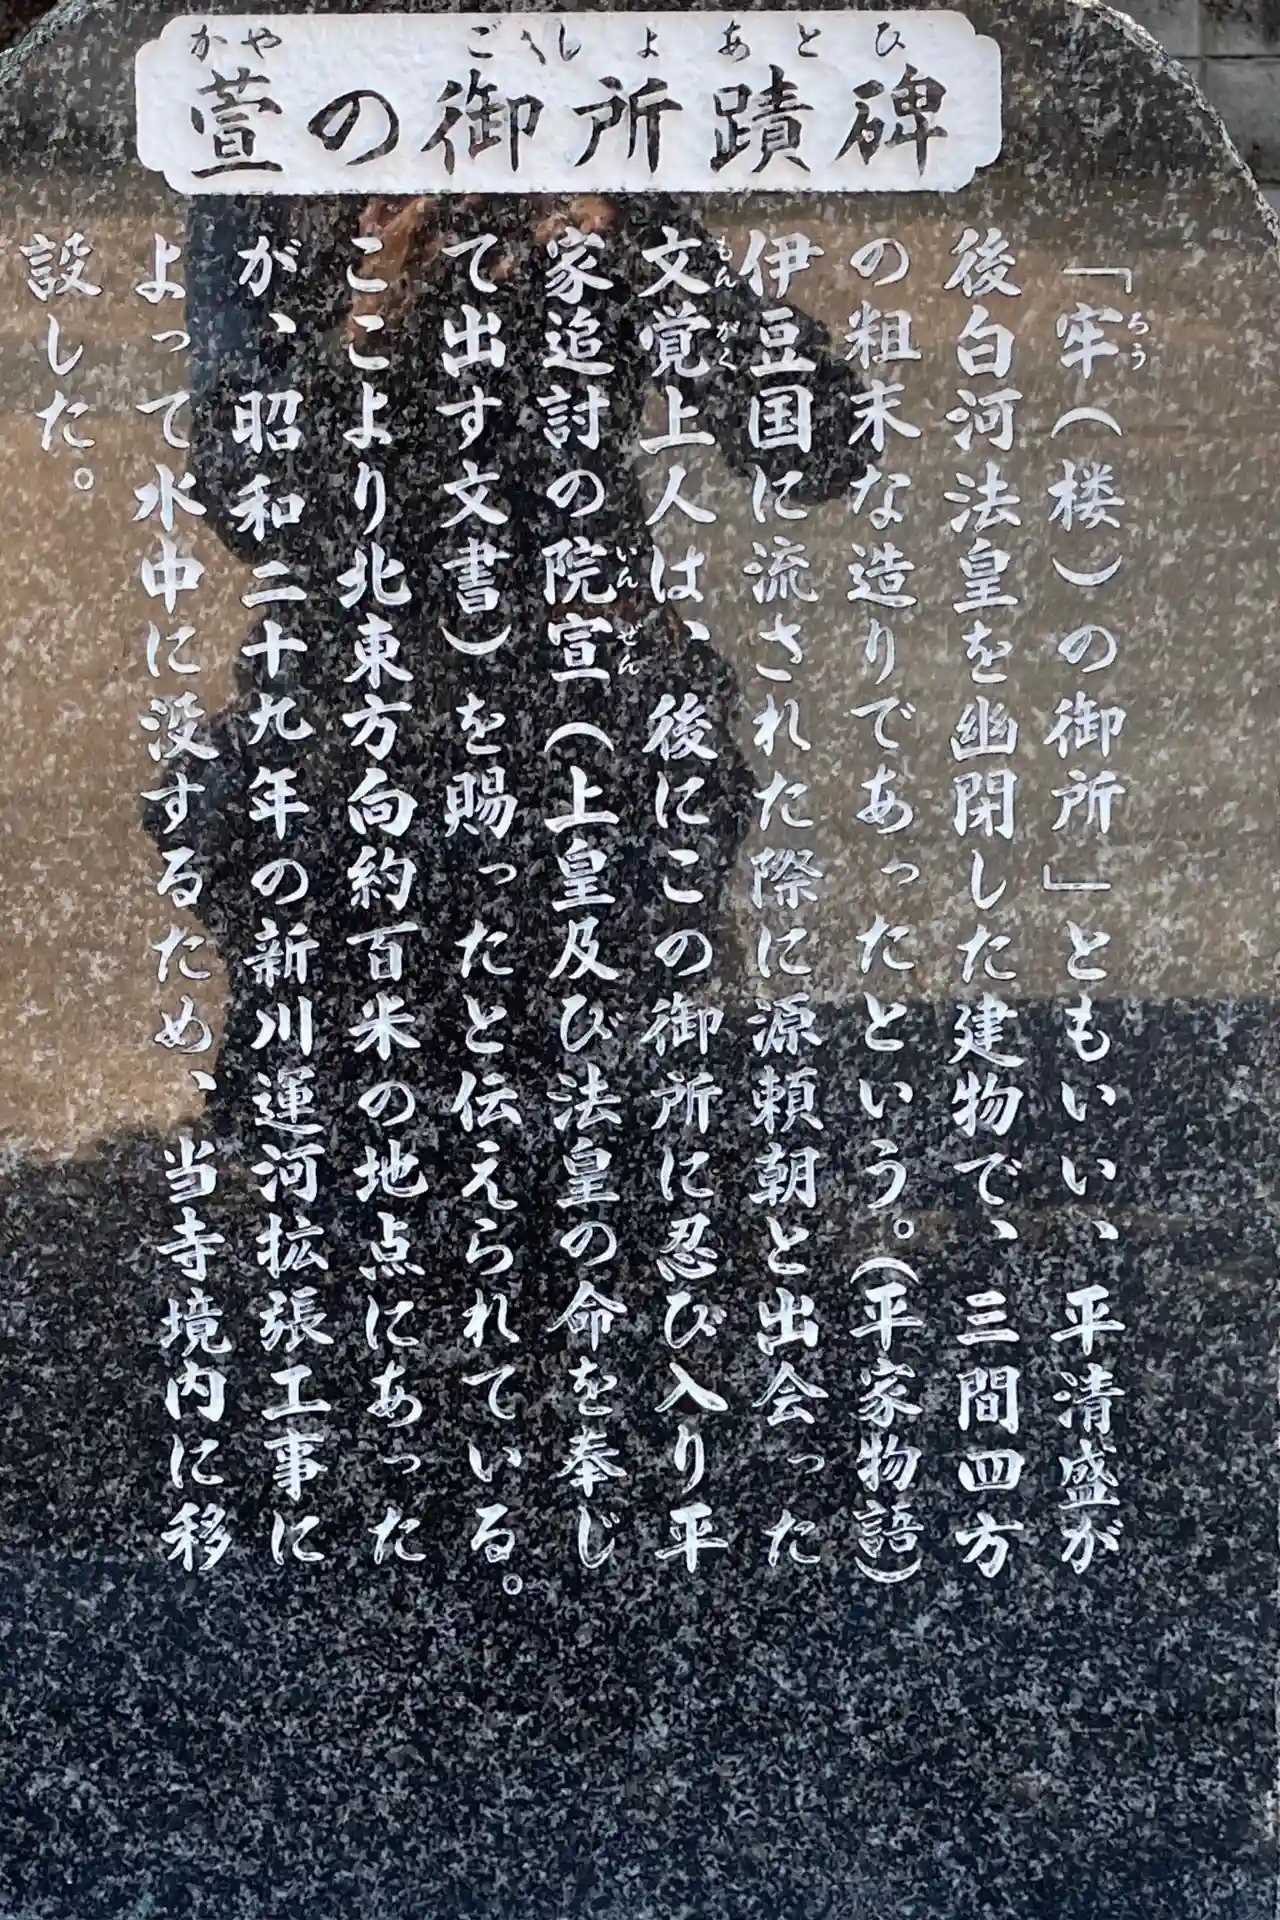 かや ごしょあとひ
萱の御所蹟碑
「牢(楼)の御所」ともいい、平清盛が
ろう
後白河法皇を幽閉した建物で、三間四方
の粗末な造りであったという。(平家物語)
伊豆国に流された際に源頼朝と出会った
文覚上人は、後にこの御所に忍び入り平
もんがく
家追討の院宣(上皇及び法皇の命を奉じ
いんぜん
て出す文書)を賜ったと伝えられている。
ここより北東方向約百米の地点にあった
が、昭和二十九年の新川運河拡張工事に
よって水中に没するため、当寺境内に移
設した。